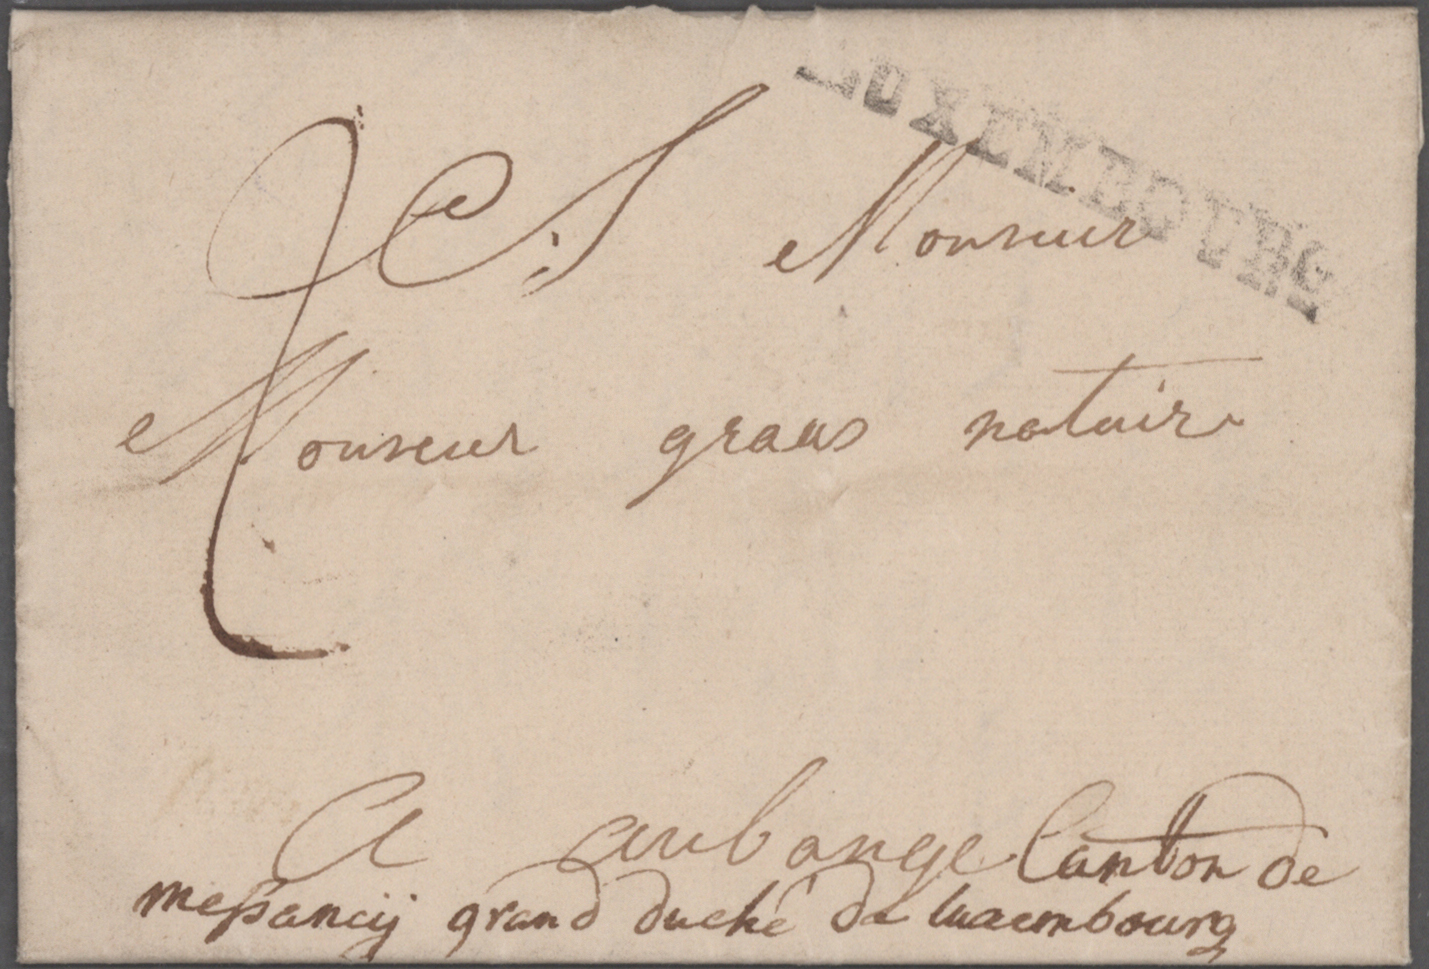 LUXEMBOURG
Monsieur
Monsieur graas notaire
A aubange Canton de
messancij grand duché de luxembourg